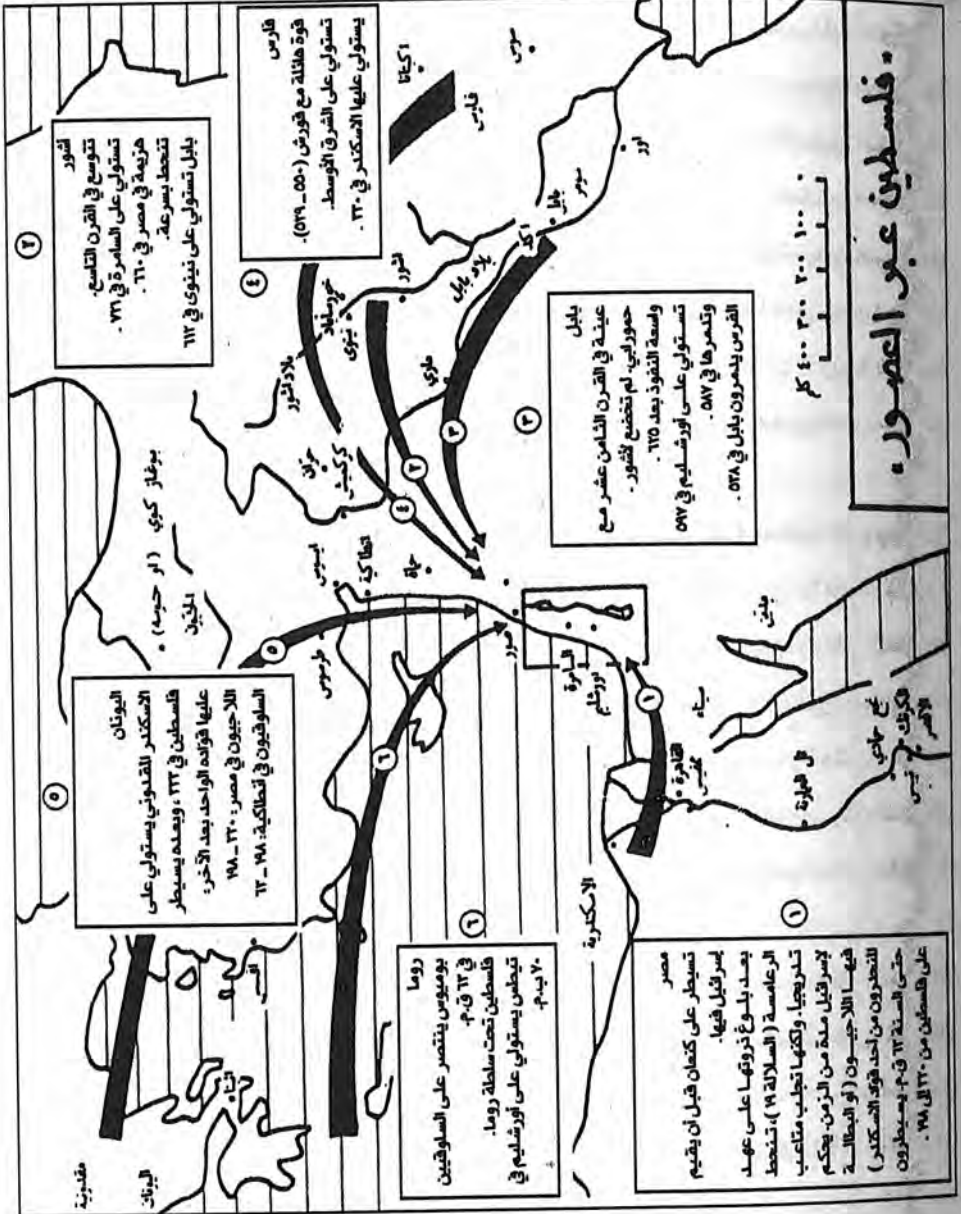 "فلسطين عبر العصور"
٠ ١٠٠ ٢٠٠ ٣٠٠ ٤٠٠ كم
١
مصر
تسيطر على كنعان قبل أن يقيم
إسرائيل فيها.
بعد بلوغ ذروتها على عهد
الرعامسة (السلالة ١٩)، تنحط
تدريجيا. ولكنها تجلب متاعب
لإسرائيل مدة من الزمن. يحكم
فيها اللاجيون (أو البطالسة
المتحدرون من أحد قواد الاسكندر)
حتى السنة ٦٣ ق.م. يسيطرون
على فلسطين من ٣٢٠ إلى ١٩٨.
٢
أشور
تتوسع في القرن التاسع.
تستولي على السامرة في ٧٢١.
هزيمة في مصر في ٦٦٠.
تنحط بسرعة.
بابل تستولي على نينوى في ٦١٢
٣
بابل
عينة في القرن الثامن عشر مع
حمورابي. لم تخضع لأشور.
واسعة النفوذ بعد ٦٢٥
تستولي على أورشليم في ٥٩٧
وتدمرها في ٥٨٧.
الفرس يدمرون بابل في ٥٣٨.
٤
فارس
قوة هائلة مع قورش (٥٥٠ _ ٥٢٩).
تستولي على الشرق الأوسط.
يستولي عليها الاسكندر في ٣٣٠.
٥
اليونان
الاسكندر المقدوني يستولي على
فلسطين في ٣٣٣، وبعده يسيطر
عليها قواده الواحد بعد الآخر:
اللاجيون في مصر: ٣٢٠ _ ١٩٨
السلوقيون في أنطاكية: ١٩٨ _ ٦٣
٦
روما
بومبيوس ينتصر على السلوقيين
فلسطين تحت سلطة روما.
في ٦٣ ق.م.
تيطس يستولي على أورشليم في
٧٠ ب.م.
مقدونية
اليونان
اثينا
افسس
طرسوس
ايسس
انطاكية
حماة
صور
السامرة
اورشليم
بوغاز كوي (او حبسه)
الحثيون
حران
كركميش
بلاد اشور
خورساباد
نينوى
اشور
ماري
بلاد بابل
اكد
بابل
سومر
اور
سوس
فارس
اكبتانا
الاسكندرية
القاهرة
ممفيس
سيناء
مدين
تل العمارنة
نجع حمادي
الكرنك
طيبة
الاقصر
١
٢
٣
٤
٥
٦